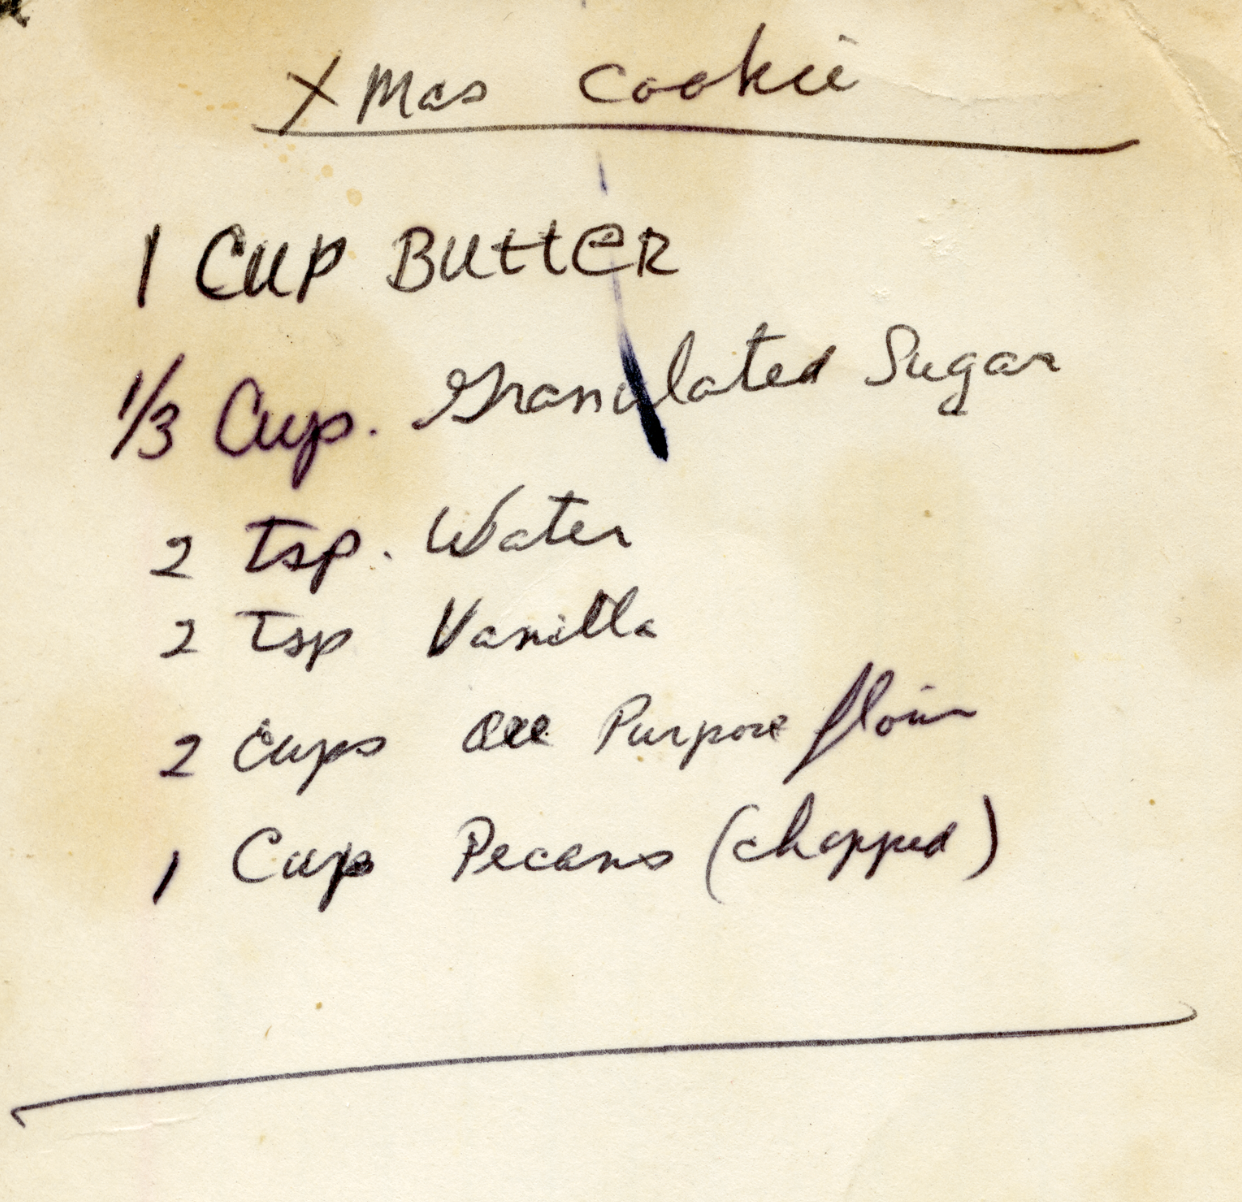 X Mas Cookie
1 CUP BUttER
1/3 Cup. Granulated Sugar
2 Tsp. Water
2 Tsp Vanilla
2 Cups All Purpose flour
1 Cup Pecans (chopped)